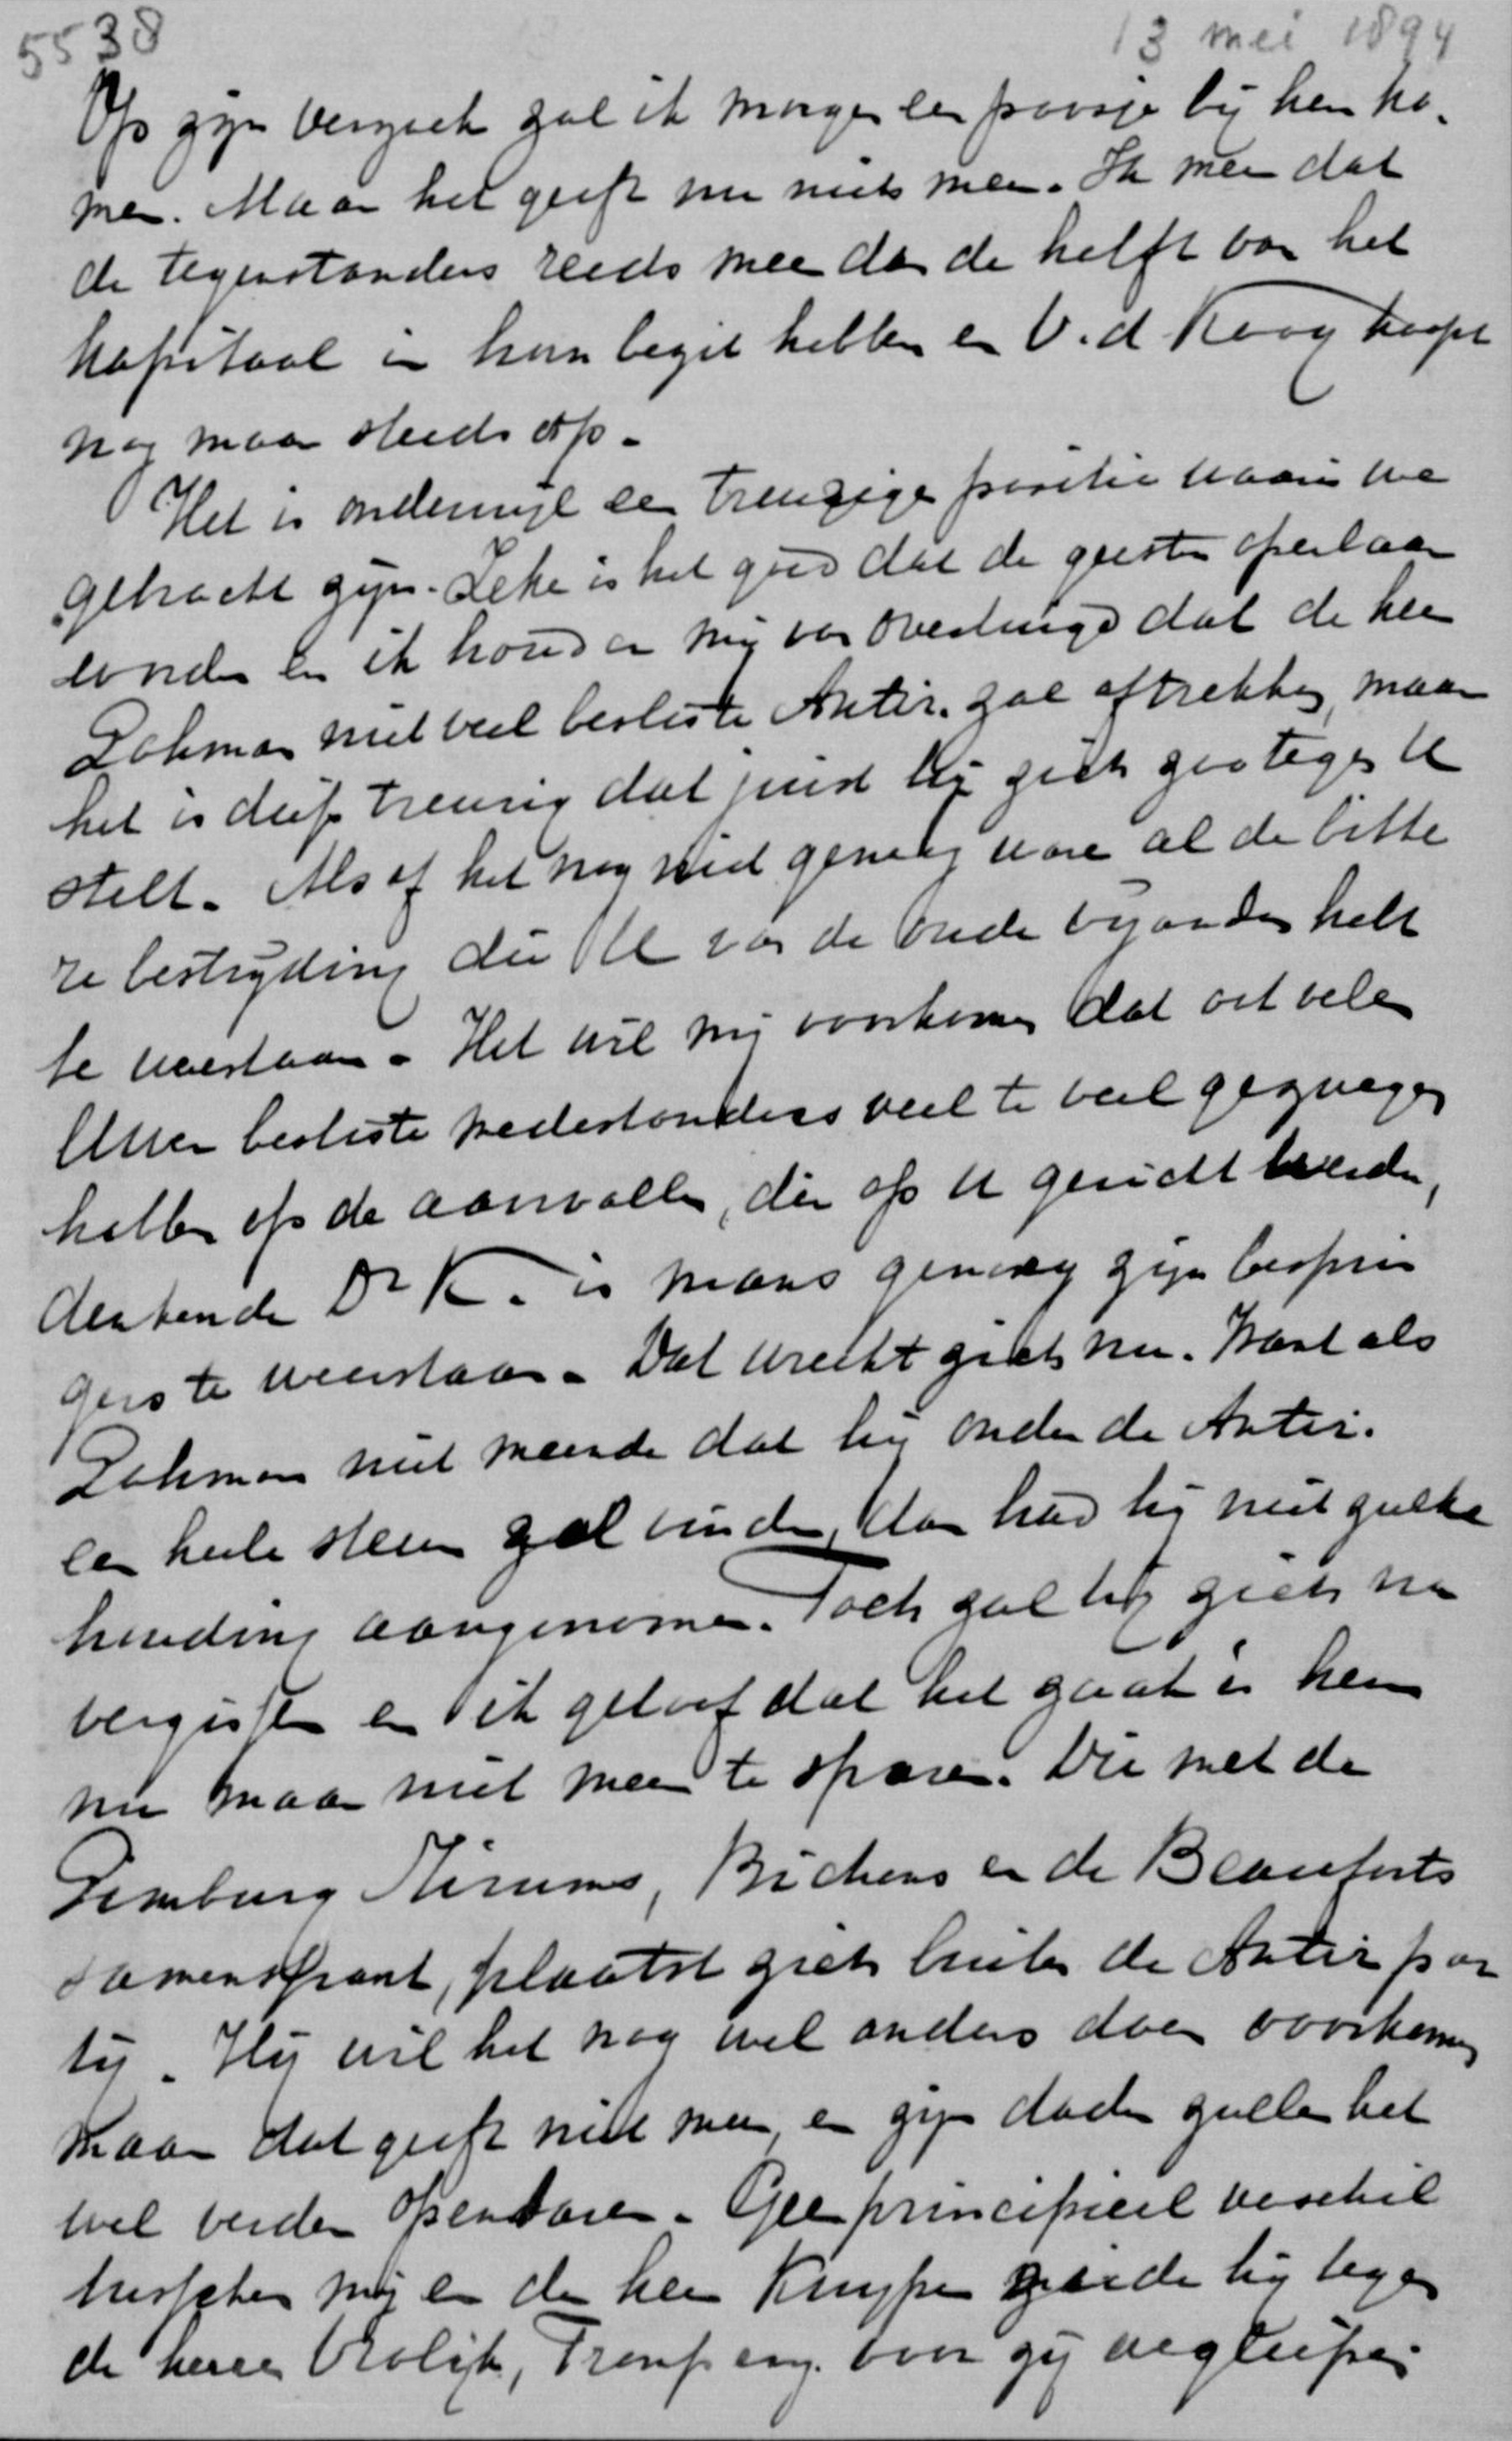 5538
13 mei 1894
Op zijn verzoek zal ik morgen een praatje bij hem ko-
men. Maar het geeft nu niets meer. Ik meen dat
de tegenstanders reeds meer dan de helft van het
kapitaal in hun bezit hebben en V.d Kooy koopt
nog maar steeds op.
Het is ondermijl een treurige positie waarin we
gebracht zijn. Zeker is het goed dat de geesten openbaar
worden en ik houd er mij van overtuigd dat de heer
Lohman niet veel besliste Antir. zal aftrekken, maar
het is diep treurig dat juist hij zich zoo tegen U
stelt. Alsof het nog niet genoeg ware al de bitte
re bestrijding die U van de oude vijanden hebt
te weerstaan. Het wil mij voorkomen dat ook vele
Uwer besliste medestanders veel te veel gezwegen
hebben op de aanvallen, die op U gericht werden,
denkende Dr K. is mans genoeg zijn besprin
gers te weerstaan. Dat wreekt zich nu. Want als
Lohman niet meende dat hij onder de Antir.
een heele steun zal vinden, dan had hij niet zulke
houding aangenomen. Toch zal hij zich nu
vergissen en ik geloof dat het zaak is hem
nu maar niet meer te sparen. Die met de
Limburg Stirums, Bichons en de Beauforts
samenspant, plaatst zich buiten de Antir par
tij. Hij wil het nog wel anders doen voorkomen
maar dat geeft niet meer, en zijn daden zullen het
wel verder openbaren. Geen principieel verschil
tusschen mij en de heer Kuyper zeide hij tegen
de heeren Vrolijk, Tromp enz. voor zij wegliepen